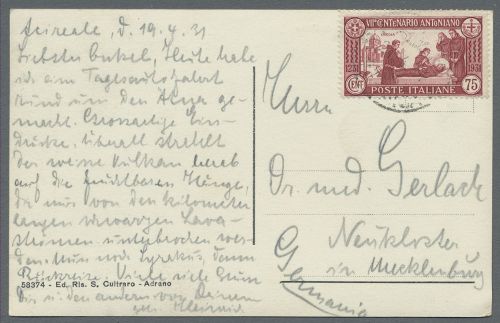 Acireale, d. 19.4.31
Liebster Onkel, Heute habe
ich eine Tagesautofahrt
rund um den Ätna ge-
macht. Grossartige Ein-
drücke, überall strahlt
der weisse Vulkan herab
auf die fruchtbaren Hänge,
die nur von den kilometer
langen schwarzen Lava-
strömen unterbrochen wer-
den. Nun noch Syrakus, dann
Rückreise. Viele viele Grüsse
Dir u. den andern von Deinem
VII° CENTENARIO ANTONIANO
CENT 75
POSTE ITALIANE
Herrn
Dr. med. Gerlach
Neukloster
in Mecklenburg
Germania
58374 - Ed. Ris. S. Cultraro - Adrano